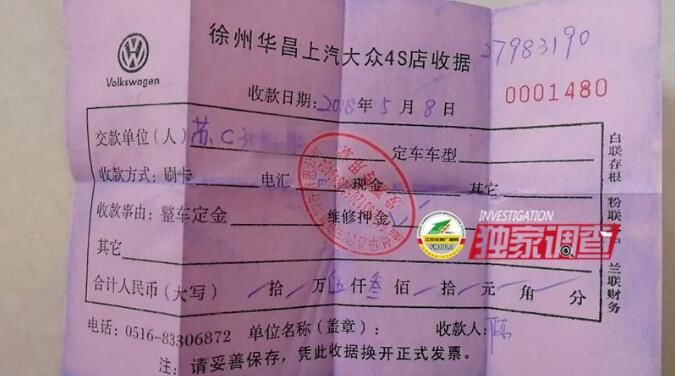 徐州华昌上汽大众4S店收据 27983190
Volkswagen
收款日期: 2018年5月8日
0001480
交款单位(人) 苏.C 定车车型
收款方式: 刷卡 电汇 现金 其它
收款事由: 整车定金 维修押金
其它
合计人民币(大写) 拾 万 伍仟 叁佰 拾 元 角 分
电话: 0516-83306872 单位名称(盖章): 收款人:
注: 请妥善保存, 凭此收据换开正式发票。
白联存根 粉联 户 兰联财务
INVESTIGATION
独家调查